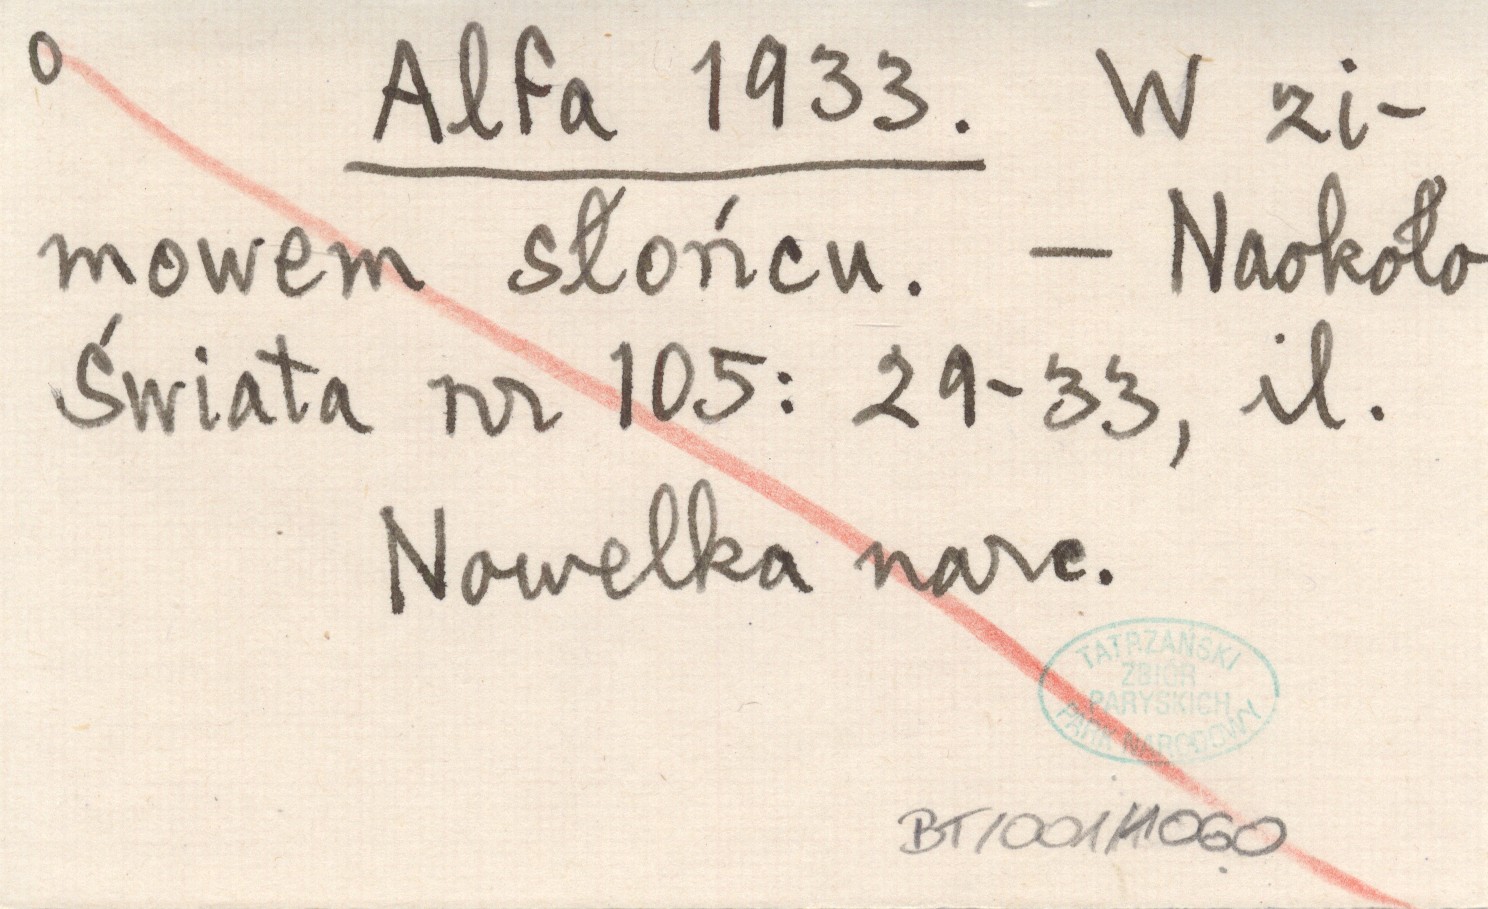 o Alfa 1933. W zi-
mowem słońcu. — Naokoło
Świata nr 105: 29-33, il.
Nowelka narc.
TATRZAŃSKI
ZBIÓR
PARYSKICH
PARK NARODOWY
BT/001/11060